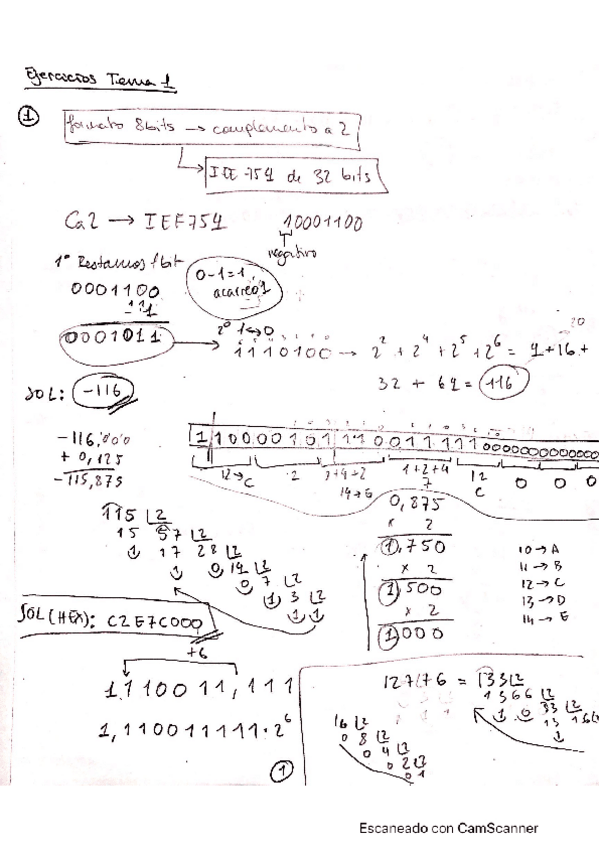 Ejercicios Tema 1
1
formato 8bits → complemento a 2
IEE 754 de 32 bits
Ca2 → IEE754 10001100
negativo
1º Restamos 1 bit
0-1=1, acarreo 1
0001100
- 1
0001011
2º 1↔0
1110100 → 2² + 2⁴ + 2⁵ + 2⁶ = 4+16+
32 + 64 = 116
SOL: -116
-116,000
+ 0,125
-115,875
1 10000101 11001111100000000000000
12→C 2 14→E 1+2+4 7 12 C 0 0 0
0,875
x 2
1,750
x 2
1,500
x 2
1,000
10→A
11→B
12→C
13→D
14→E
115 |2
15 57 |2
1 17 28 |2
1 0 14 |2
0 7 |2
1 3 |2
1 1
SOL (HEX): C2E7C000
+6
1110011,111
1,110011111·2⁶
1
127+6 = 133 |2
13 66 |2
1 0 33 |2
13 16
1
16 |2
0 8 |2
0 4 |2
0 2 |2
0 1
Escaneado con CamScanner